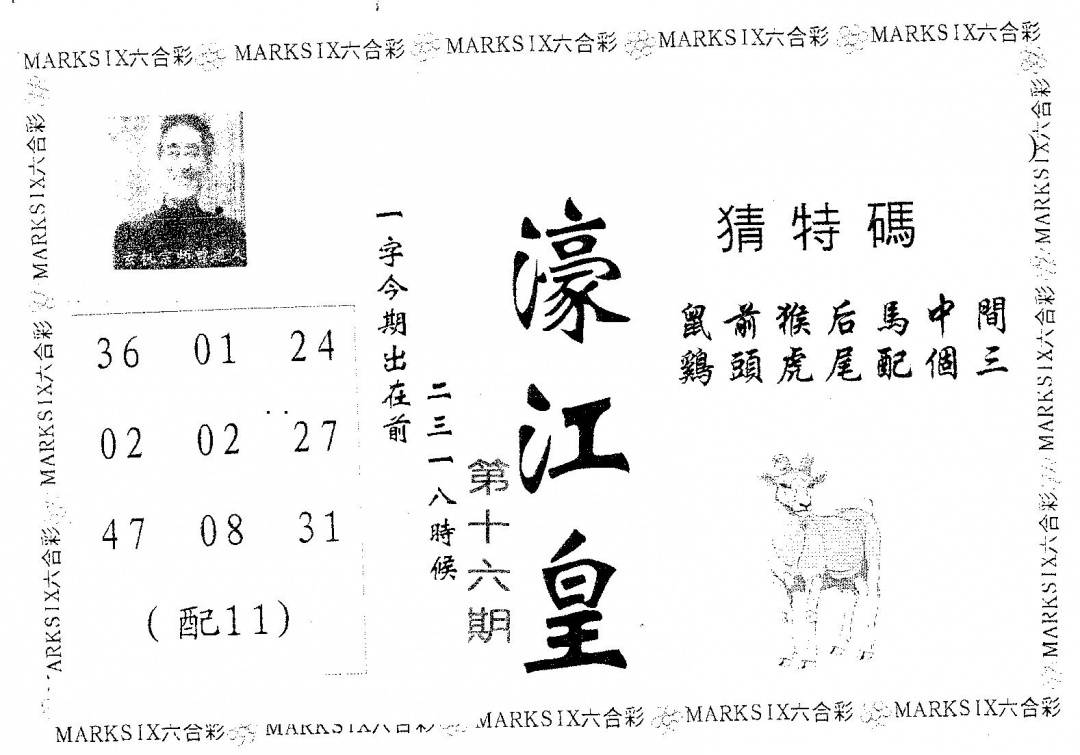 MARKSIX六合彩 MARKSIX六合彩 MARKSIX六合彩 MARKSIX六合彩 MARKSIX六合彩
MARKSIX六合彩 MARKSIX六合彩 ARKSIX六合彩
36 01 24
02 02 27
47 08 31
(配11)
一字今期出在前
二三一八時候
第十六期
濠江皇
猜特碼
鼠前猴后馬中間
鷄頭虎尾配個三
MARKSIX六合彩 MARKSIX六合彩 MARKSIX六合彩
MARKSIX六合彩 MARKSIX六合彩 MARKSIX六合彩 MARKSIX六合彩 MARKSIX六合彩